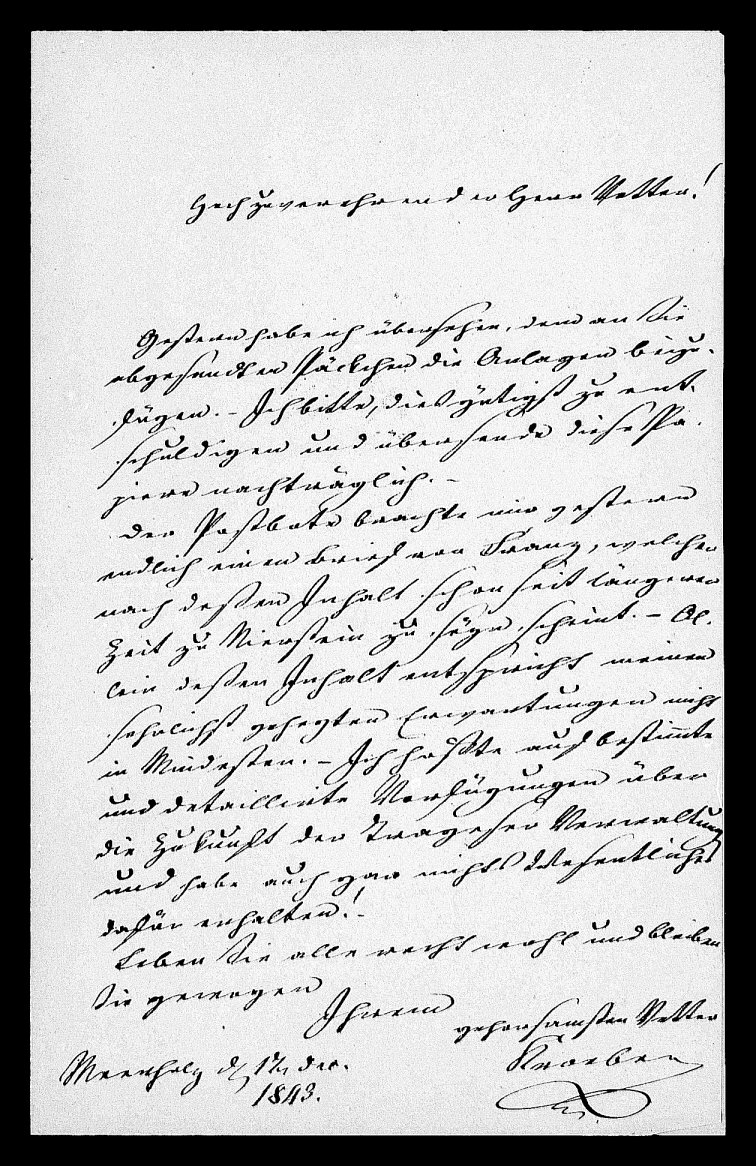 Hochzuverehrender Herr Vetter!
Gestern habe ich übersehen, dem an Sie
abgesandten Päckchen die Anlagen beizu-
fügen. – Ich bitte, dies gütigst zu ent-
schuldigen und übersende diese Pa-
piere nachträglich. –
Der Postbote brachte mir gestern
endlich einen Brief von Franz, welcher
nach deßen Inhalt schon seit längerer
Zeit zu Nierstein zu seyn scheint. – Al-
lein deßen Inhalt entspricht meinen
sehnlichst gehegten Erwartungen nicht
im Mindesten. – Ich hoffte auf bestimmte
und detaillirte Verfügungen über
die Zukunft der Trageser Verwaltung
und habe auch gar nichts Wesentliches
dafür erhalten! –
Leben Sie alle recht wohl und bleiben
Sie gewogen
Ihrem
gehorsamsten Vetter
Meerholz d. 17 Dec.
1843.